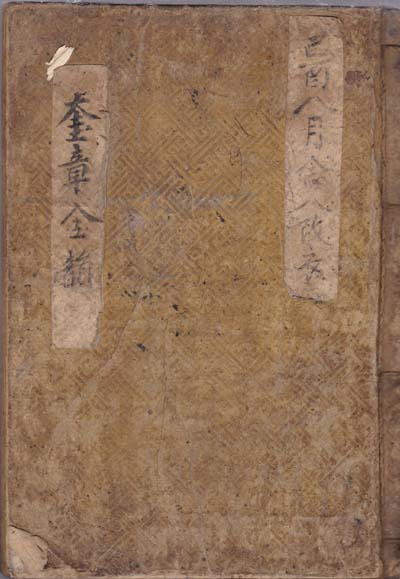 己酉八月念八改衣
奎章全韻